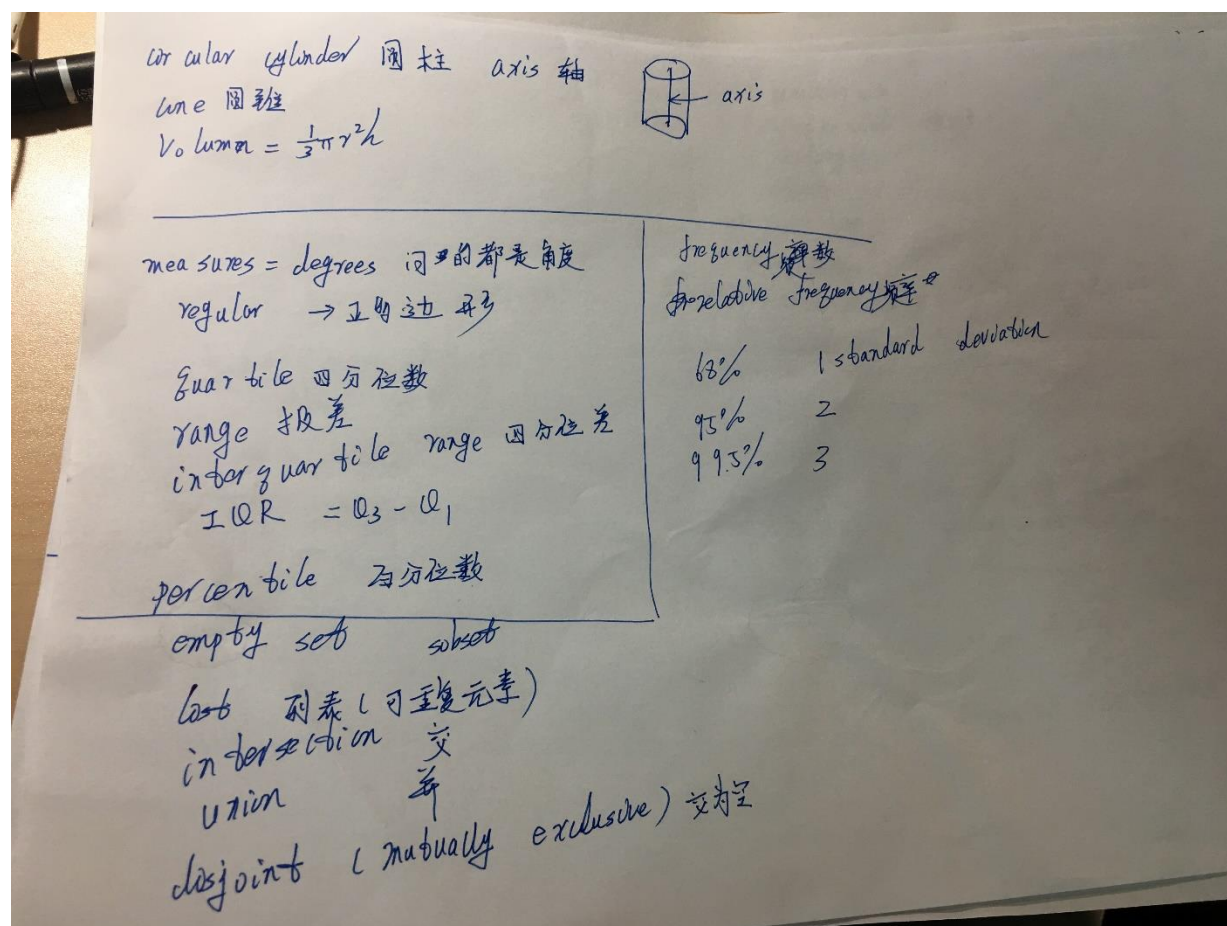 circular cylinder 圆柱 axis 轴
axis
cone 圆锥
Volumn = 1/3 πr²h
measures = degrees 问的都是角度
regular → 正多边形
quartile 四分位数
range 极差
interquartile range 四分位差
IQR = Q₃ - Q₁
percentile 百分位数
frequency 频数
relative frequency 频率
68% 1 standard deviation
95% 2
99.5% 3
empty set subset
list 列表(可重复元素)
intersection 交
union 并
disjoint (mutually exclusive) 交为空